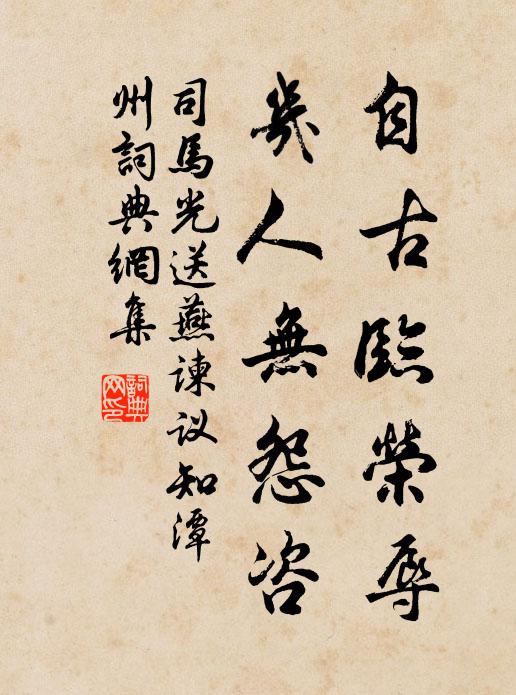 自古臨榮辱
幾人無怨咨
司馬光送燕諫议知潭
州詞典網集
詞典
网印